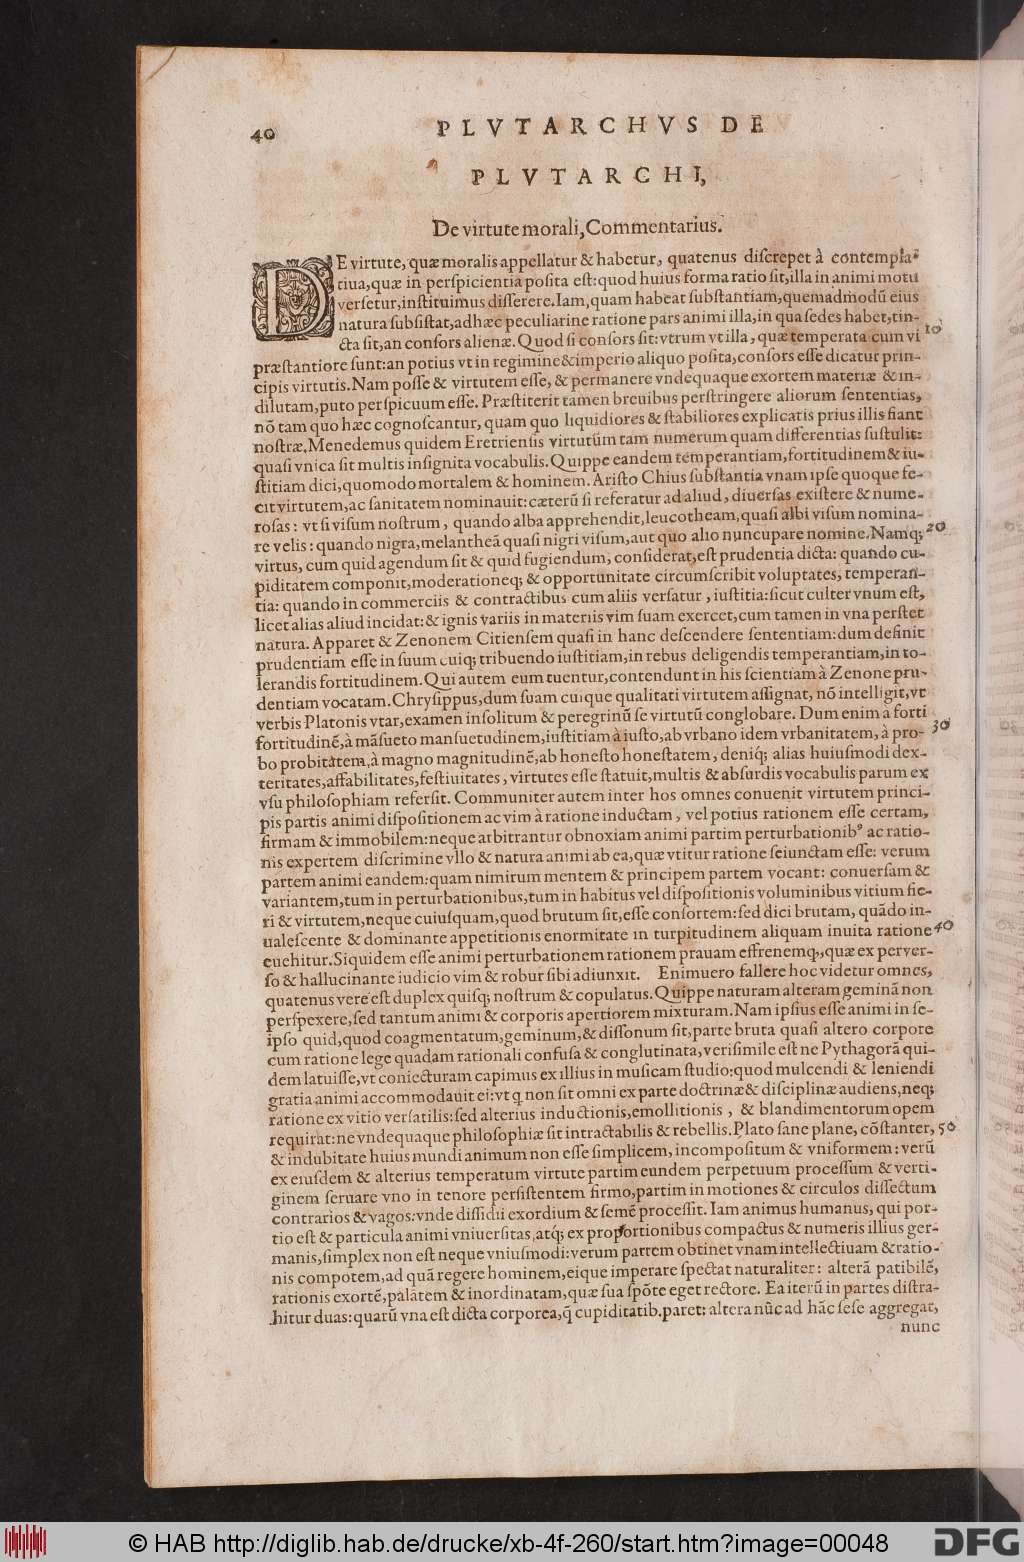 40
PLVTARCHVS DE
PLVTARCHI,
De virtute morali, Commentarius.
DE virtute, quæ moralis appellatur & habetur, quatenus discrepet à contempla-
tiua, quæ in perspicientia posita est: quod huius forma ratio sit, illa in animi motu
versetur, instituimus disserere. Iam, quam habeat substantiam, quemadmodū eius
natura subsistat, adhæc peculiarine ratione pars animi illa, in qua sedes habet, tin-
cta sit, an consors alienæ. Quod si consors sit: vtrum vt illa, quæ temperata cum vi 10
præstantiore sunt: an potius vt in regimine & imperio aliquo posita, consors esse dicatur prin-
cipis virtutis. Nam posse & virtutem esse, & permanere vndequaque exortem materiæ & in-
dilutam, puto perspicuum esse. Præstiterit tamen breuibus perstringere aliorum sententias,
nō tam quo hæc cognoscantur, quam quo liquidiores & stabiliores explicatis prius illis fiant
nostræ. Menedemus quidem Eretriensis virtutum tam numerum quam differentias sustulit:
quasi vnica sit multis insignita vocabulis. Quippe eandem temperantiam, fortitudinem & iu-
stitiam dici, quomodo mortalem & hominem. Aristo Chius substantia vnam ipse quoque fe-
cit virtutem, ac sanitatem nominauit: cæterū si referatur ad aliud, diuersas existere & nume-
rosas: vt si visum nostrum, quando alba apprehendit, leucotheam, quasi albi visum nomina-
re velis: quando nigra, melantheā quasi nigri visum, aut quo alio nuncupare nomine. Namq; 20
virtus, cum quid agendum sit & quid fugiendum, considerat, est prudentia dicta: quando cu-
piditatem componit, moderationeq; & opportunitate circumscribit voluptates, temperan-
tia: quando in commerciis & contractibus cum aliis versatur, iustitia: sicut culter vnum est,
licet alias aliud incidat: & ignis variis in materiis vim suam exercet, cum tamen in vna perstet
natura. Apparet & Zenonem Citiensem quasi in hanc descendere sententiam: dum definit
prudentiam esse in suum cuiq; tribuendo iustitiam, in rebus deligendis temperantiam, in to-
lerandis fortitudinem. Qui autem eum tuentur, contendunt in his scientiam à Zenone pru-
dentiam vocatam. Chrysippus, dum suam cuique qualitati virtutem assignat, nō intelligit, vt
verbis Platonis vtar, examen insolitum & peregrinū se virtutū conglobare. Dum enim a forti
fortitudinē, à māsueto mansuetudinem, iustitiam à iusto, ab vrbano idem vrbanitatem, à pro- 30
bo probitatem, à magno magnitudinē, ab honesto honestatem, deniq; alias huiusmodi dex-
teritates, affabilitates, festiuitates, virtutes esse statuit, multis & absurdis vocabulis parum ex
vsu philosophiam refersit. Communiter autem inter hos omnes conuenit virtutem princi-
pis partis animi dispositionem ac vim à ratione inductam, vel potius rationem esse certam,
firmam & immobilem: neque arbitrantur obnoxiam animi partim perturbationibꝰ ac ratio-
nis expertem discrimine vllo & natura animi ab ea, quæ vtitur ratione seiunctam esse: verum
partem animi eandem: quam nimirum mentem & principem partem vocant: conuersam &
variantem, tum in perturbationibus, tum in habitus vel dispositionis voluminibus vitium fie-
ri & virtutem, neque cuiusquam, quod brutum sit, esse consortem: sed dici brutam, quādo in-
ualescente & dominante appetitionis enormitate in turpitudinem aliquam inuita ratione 40
euehitur. Siquidem esse animi perturbationem rationem prauam effrenemq;, quæ ex peruer-
so & hallucinante iudicio vim & robur sibi adiunxit. Enimuero fallere hoc videtur omnes,
quatenus vere est duplex quisq; nostrum & copulatus. Quippe naturam alteram geminā non
perspexere, sed tantum animi & corporis apertiorem mixturam. Nam ipsius esse animi in se-
ipso quid, quod coagmentatum, geminum, & dissonum sit, parte bruta quasi altero corpore
cum ratione lege quadam rationali confusa & conglutinata, verisimile est ne Pythagorā qui-
dem latuisse, vt coniecturam capimus ex illius in musicam studio: quod mulcendi & leniendi
gratia animi accommodauit ei: vt q non sit omni ex parte doctrinæ & disciplinæ audiens, neq;
ratione ex vitio versatilis: sed alterius inductionis, emollitionis, & blandimentorum opem
requirat: ne vndequaque philosophiæ sit intractabilis & rebellis. Plato sane plane, cōstanter, 50
& indubitate huius mundi animum non esse simplicem, incompositum & vniformem: verū
ex eiusdem & alterius temperatum virtute partim eundem perpetuum processum & verti-
ginem seruare vno in tenore persistentem firmo, partim in motiones & circulos dissectum
contrarios & vagos: vnde dissidii exordium & semē processit. Iam animus humanus, qui por-
tio est & particula animi vniuersitas, atq; ex proportionibus compactus & numeris illius ger-
manis, simplex non est neque vniusmodi: verum partem obtinet vnam intellectiuam & ratio-
nis compotem, ad quā regere hominem, eique imperare spectat naturaliter: alterā patibilē,
rationis exortē, palātem & inordinatam, quæ sua spōte eget rectore. Ea iterū in partes distra-
hitur duas: quarū vna est dicta corporea, q̄ cupiditatib. paret: altera nūc ad hāc sese aggregat,
nunc
© HAB http://diglib.hab.de/drucke/xb-4f-260/start.htm?image=00048
DFG